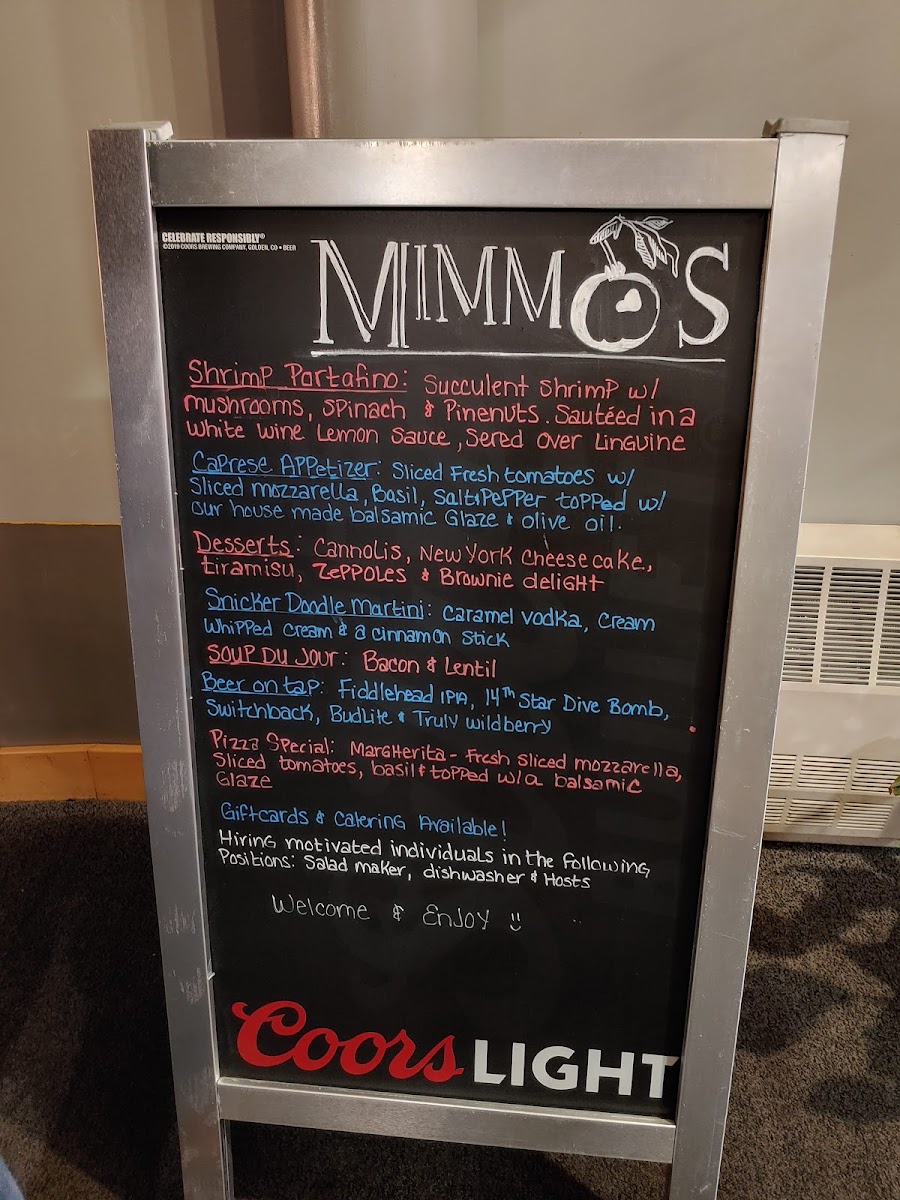 CELEBRATE RESPONSIBLY®
©2019 COORS BREWING COMPANY, GOLDEN, CO • BEER
MIMMO'S
Shrimp Portafino: Succulent Shrimp w/
mushrooms, Spinach & Pinenuts. Sautéed in a
White Wine Lemon Sauce, Sered over Linguine
Caprese Appetizer: Sliced Fresh tomatoes w/
Sliced mozzarella, Basil, Salt & Pepper topped w/
our house made balsamic Glaze & olive oil.
Desserts: Cannolis, New York Cheesecake,
tiramisu, Zeppoles & Brownie delight
Snicker Doodle Martini: Caramel Vodka, Cream
Whipped Cream & a Cinnamon Stick
Soup Du Jour: Bacon & Lentil
Beer on tap: Fiddlehead IPA, 14th Star Dive Bomb,
Switchback, BudLite & Truly wildberry
Pizza Special: Margherita - Fresh Sliced mozzarella,
Sliced tomatoes, basil & topped w/a balsamic
Glaze
Giftcards & Catering Available!
Hiring motivated individuals in the Following
Positions: Salad maker, dishwasher & Hosts
Welcome & Enjoy
Coors LIGHT